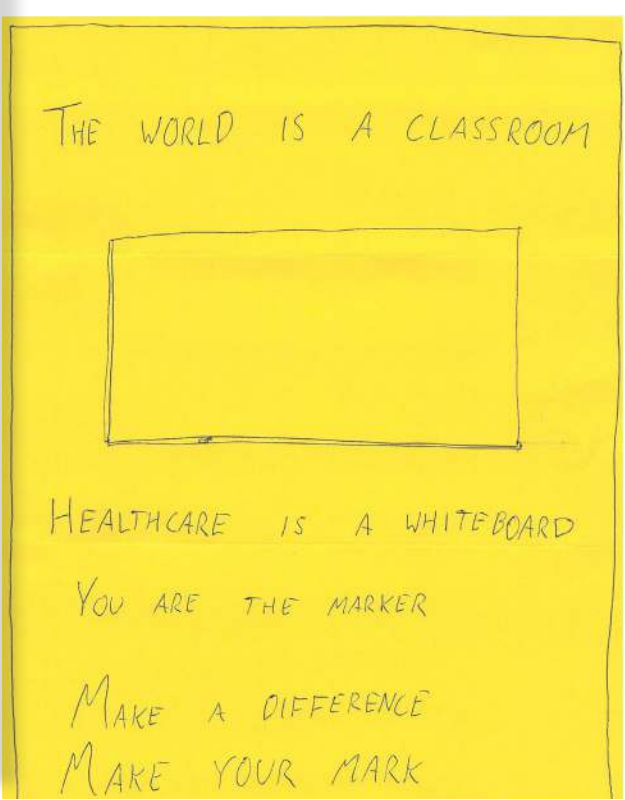 THE WORLD IS A CLASSROOM
HEALTHCARE IS A WHITEBOARD
YOU ARE THE MARKER
MAKE A DIFFERENCE
MAKE YOUR MARK